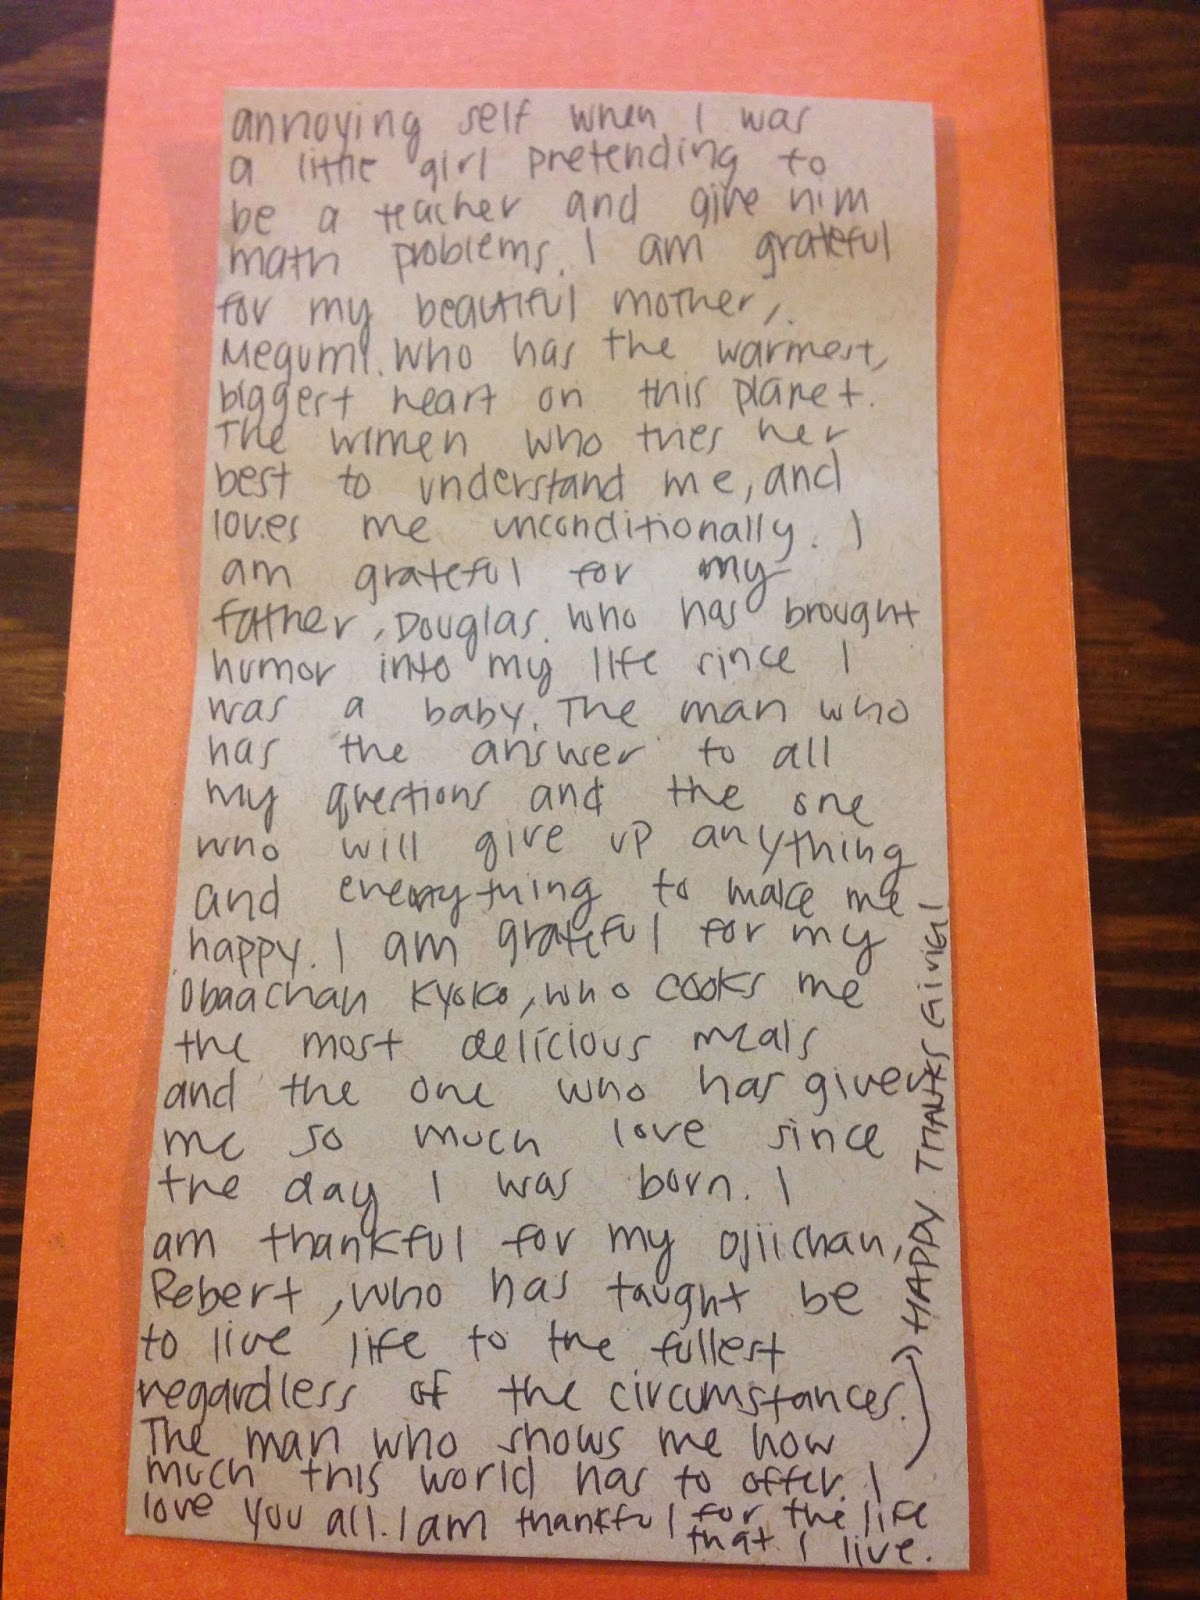 annoying self when I was
a little girl pretending to
be a teacher and give him
math problems. I am grateful
for my beautiful mother,
Megumi. Who has the warmest,
biggest heart on this planet.
The wimen who tries her
best to understand me, and
loves me unconditionally. I
am grateful for my
father, Douglas. Who has brought
humor into my life since I
was a baby. The man who
has the answer to all
my questions and the one
who will give up anything
and everything to make me
happy. I am grateful for my
Obaachan Kyoko, who cooks me
the most delicious meals
and the one who has given
me so much love since
the day I was born. I
am thankful for my Ojiichan,
Robert, who has taught be
to live life to the fullest
regardless of the circumstances.
The man who shows me how
much this world has to offer. I
love you all. I am thankful for the life
that I live.
HAPPY THANKS GIVIG!